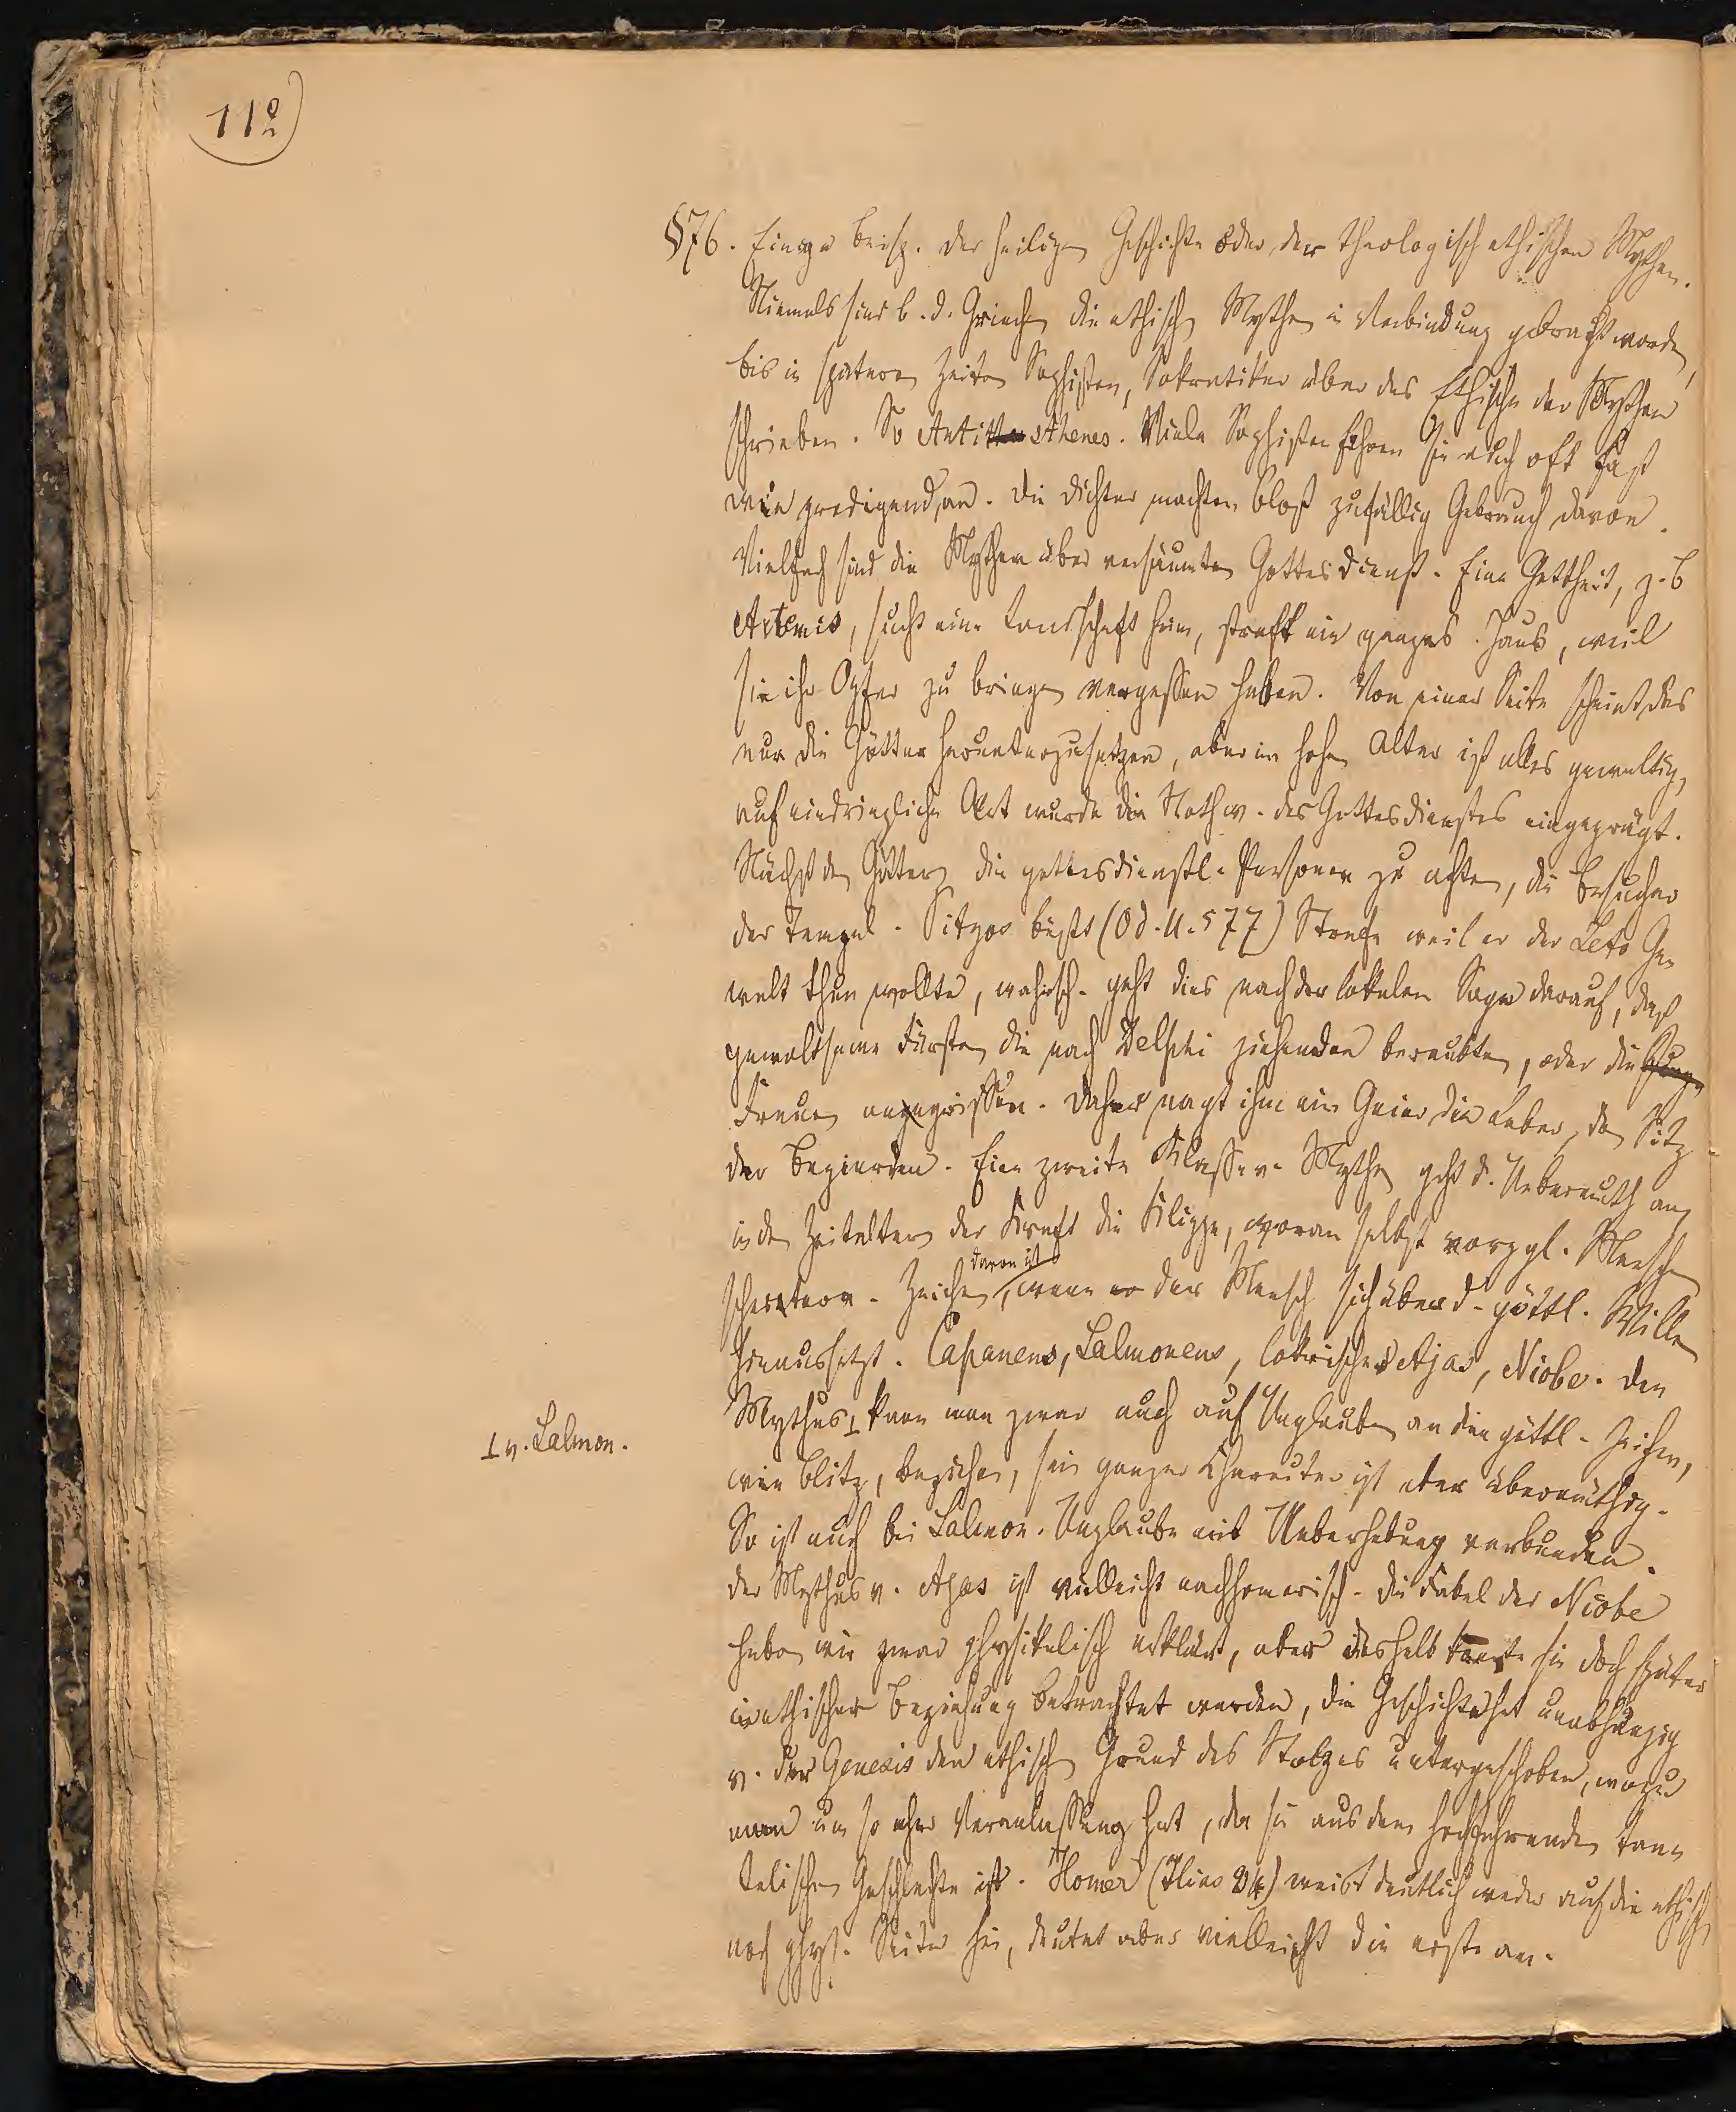 112
§76. Einige Beisp. der heiligen Geschichte oder der theologisch ethischen Mythen.
Niemals sind b. d. Griech die ethisch Mythen in Verbindung gebracht worden,
bis in spätern Zeiten Sophisten, Sokratiker über das Ethische der Mythen
schrieben. So Antisthenes. Viele Sophisten führen sie auch oft fast
wie predigend, an. Die Dichter machten bloß zufällig Gebrauch davon.
Vielfach sind die Mythen über versäumten Gottesdienst. Eine Gottheit, z. B
Artemis, sucht eine Landschaft heim, straft ein ganzes Haus, weil
sie ihr Opfer zu bringen vergessen haben. Von einer Seite scheint das
nur die Götter herunterzusetzen, aber im hohen Alter ist alles gewaltig,
auf eindringliche Art wurde die Nothw. des Gottesdienstes eingeprägt.
Nächst den Göttern die gottesdienstl. Personen zu achten, die Besucher
der Tempel. Tityos büßt (Od. 11. 577) Strafe weil er der Leto Ge-
walt thun wollte, wahrsch. geht dies nach der lokalen Sage darauf, daß
gewaltsame Fürsten die nach Delphi ziehenden beraubten, oder die
Frauen angegriffen. Daher nagt ihm ein Geier die Leber, den Sitz
der Begierden. Eine zweite Klasse v. Mythen geht d. Uebermuth an,
in den Zeitaltern der Kraft die Klippe, woran selbst vorzgl. Menschen
scheitern. Zeichen davon ist, wenn der Mensch sich über d. göttl. Willen
hinaussetzt. Capaneus, Salmoneus, lokrischer Ajas, Niobe. Den
Mythus ⊥ kann man zwar auch auf Unglauben an die göttl. Zeichen,
⊥ v. Salmon.
wie Blitz, beziehen, sein ganzer Charakter ist aber übermüthig.
So ist auch bei Salmon. Unglaube mit Ueberhebung verbunden.
Der Mythus v. Ajas ist vielleicht nachhomerisch. Die Fabel der Niobe
haben wir zwar physikalisch erklärt, aber deshalb konnte sie doch später
in ethischer Beziehung betrachtet werden, die Geschichte hat unabhängig
v. der Genesis den ethisch Grund des Stolzes untergeschoben, wozu
man um so eher Veranlassung hat, da sie aus dem hochfahrenden tan-
talischen Geschlechte ist. Homer (Ilias 24) weist deutlich weder auf die ethisch
noch phys. Seite hin, deutet aber vielleicht die erste an.